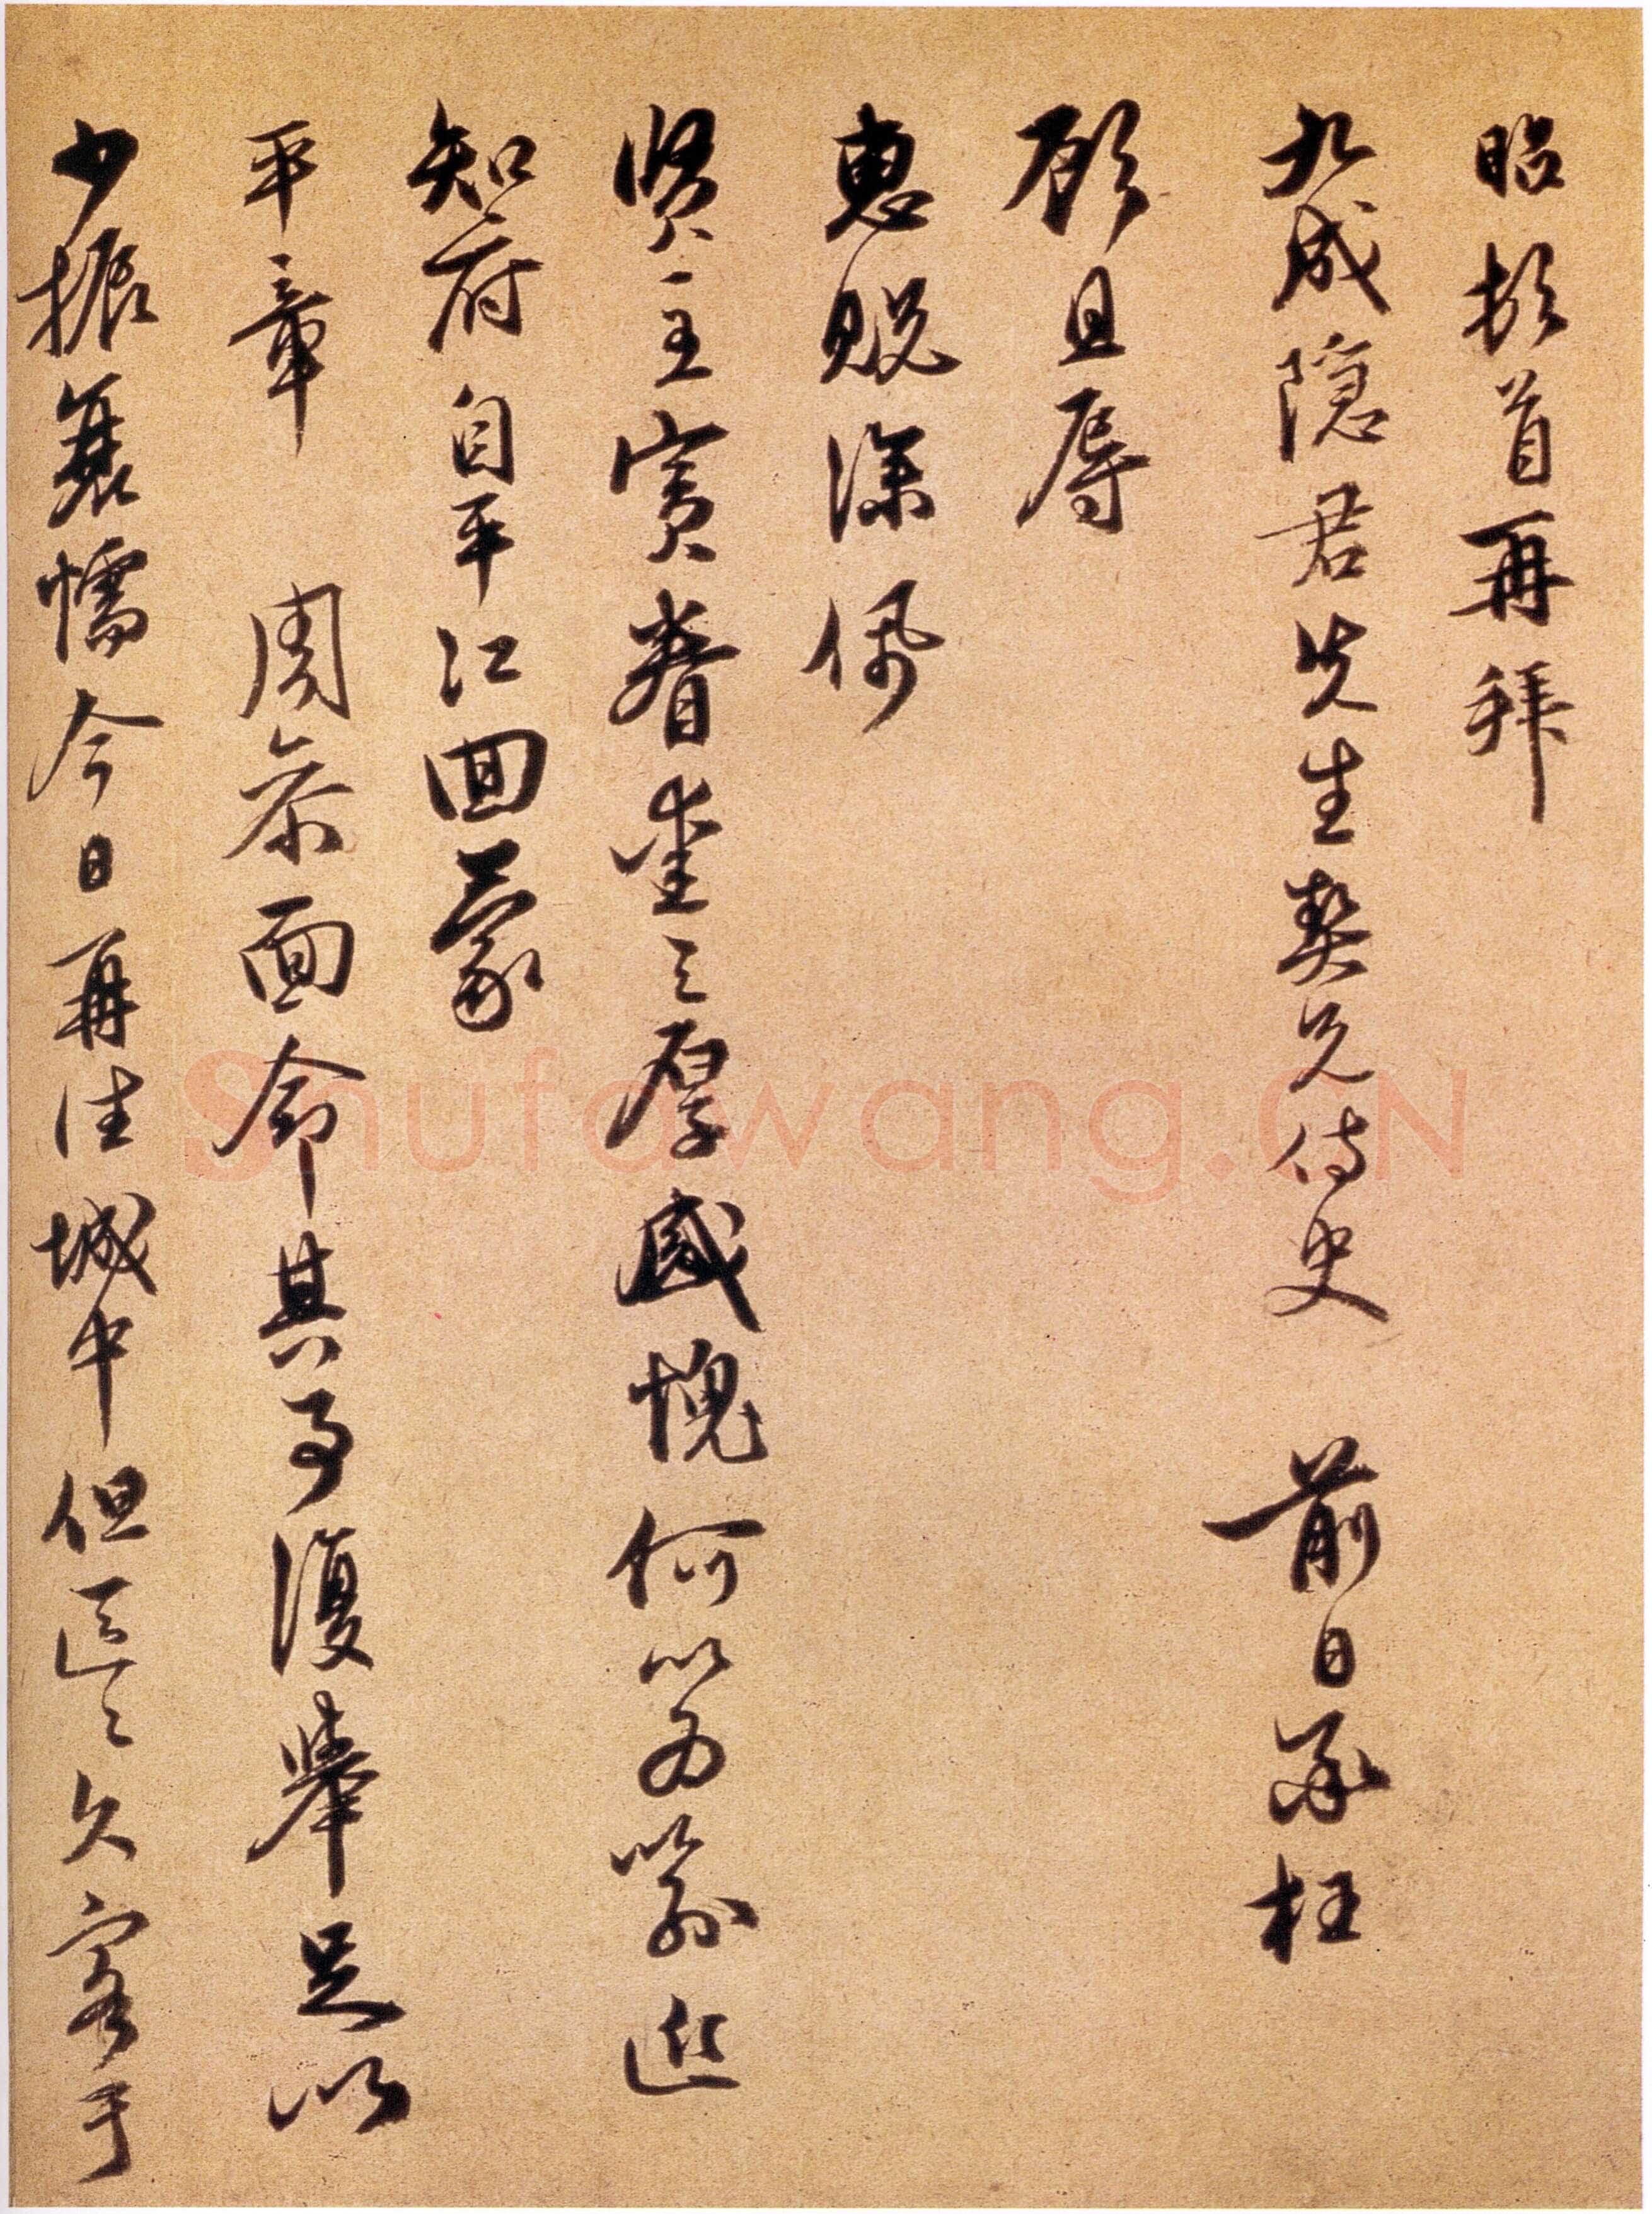 昭頓首再拜
九成隱君先生契兄侍史 前日承枉
顧且辱
惠貺深佩
賢主賓眷崖之厚感愧何以為喻近
知府自平江回蒙
平章 周參面命其事復舉足以
少振衰懦今日再往城中但區區久客于
Shufawang.CN